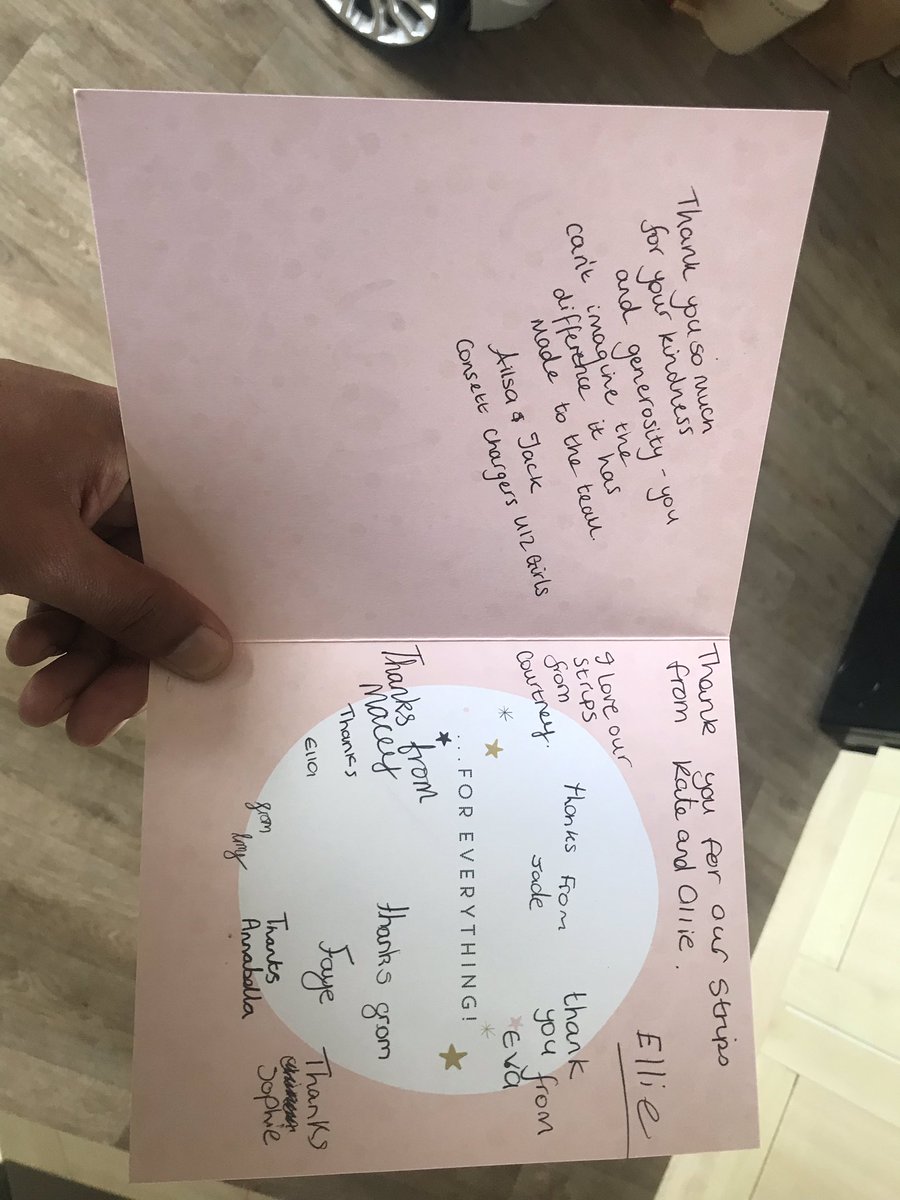 Thank you so much
for your kindness
and generosity - you
can't imagine the
difference it has
made to the team.
Ailsa & Jack
Consett Chargers U12 Girls
Thank you for our strips
from Kate and Ollie.
Ellie
I love our
strips
from
Courtney.
thanks from
Jade
thank
you from
Eva
...FOR EVERYTHING!
Thanks from
Macey
Thanks
Ella
thanks from
Faye
from
Thanks
Annabella
Thanks
Sophie